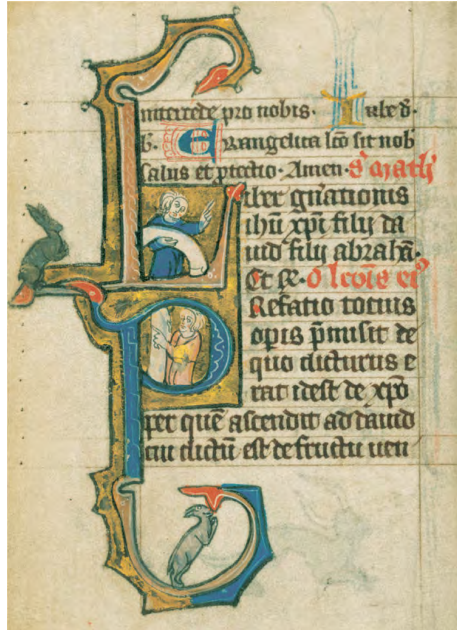 intercede pro nobis. Iube d.
b. Evangelica lco sit nob
salus et ptectio. Amen. S Math
Liber gnationis
ihu xpi filij da
uid filij abraham.
Et R. Olcois ei
Prefatio totius
opis pmisit de
quo dicturus e
rat idest de xpo
per quem ascendit ad dauid
cui dictu est de fructu uen